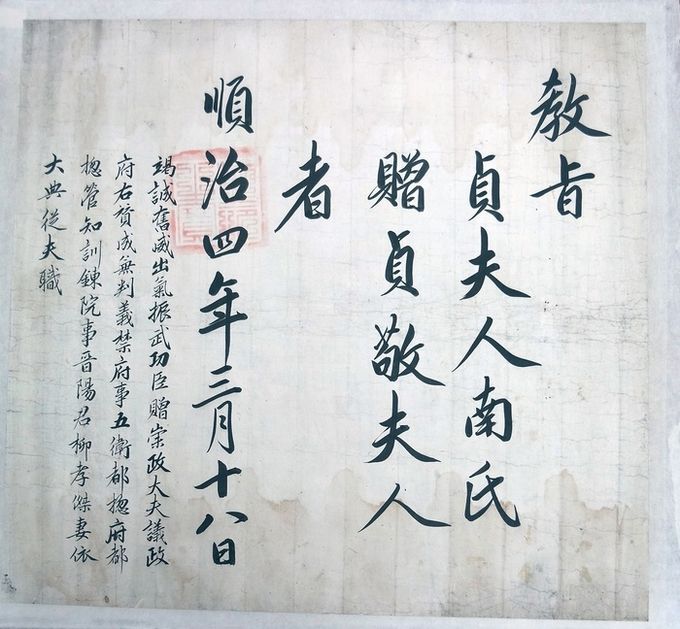 敎旨
貞夫人南氏
贈貞敬夫人
者
順治四年三月十八日
竭誠奮威出氣振武功臣贈崇政大夫議政
府右贊成兼判義禁府事五衛都摠府都
摠管知訓鍊院事晉陽君柳孝傑妻依
大典從夫職